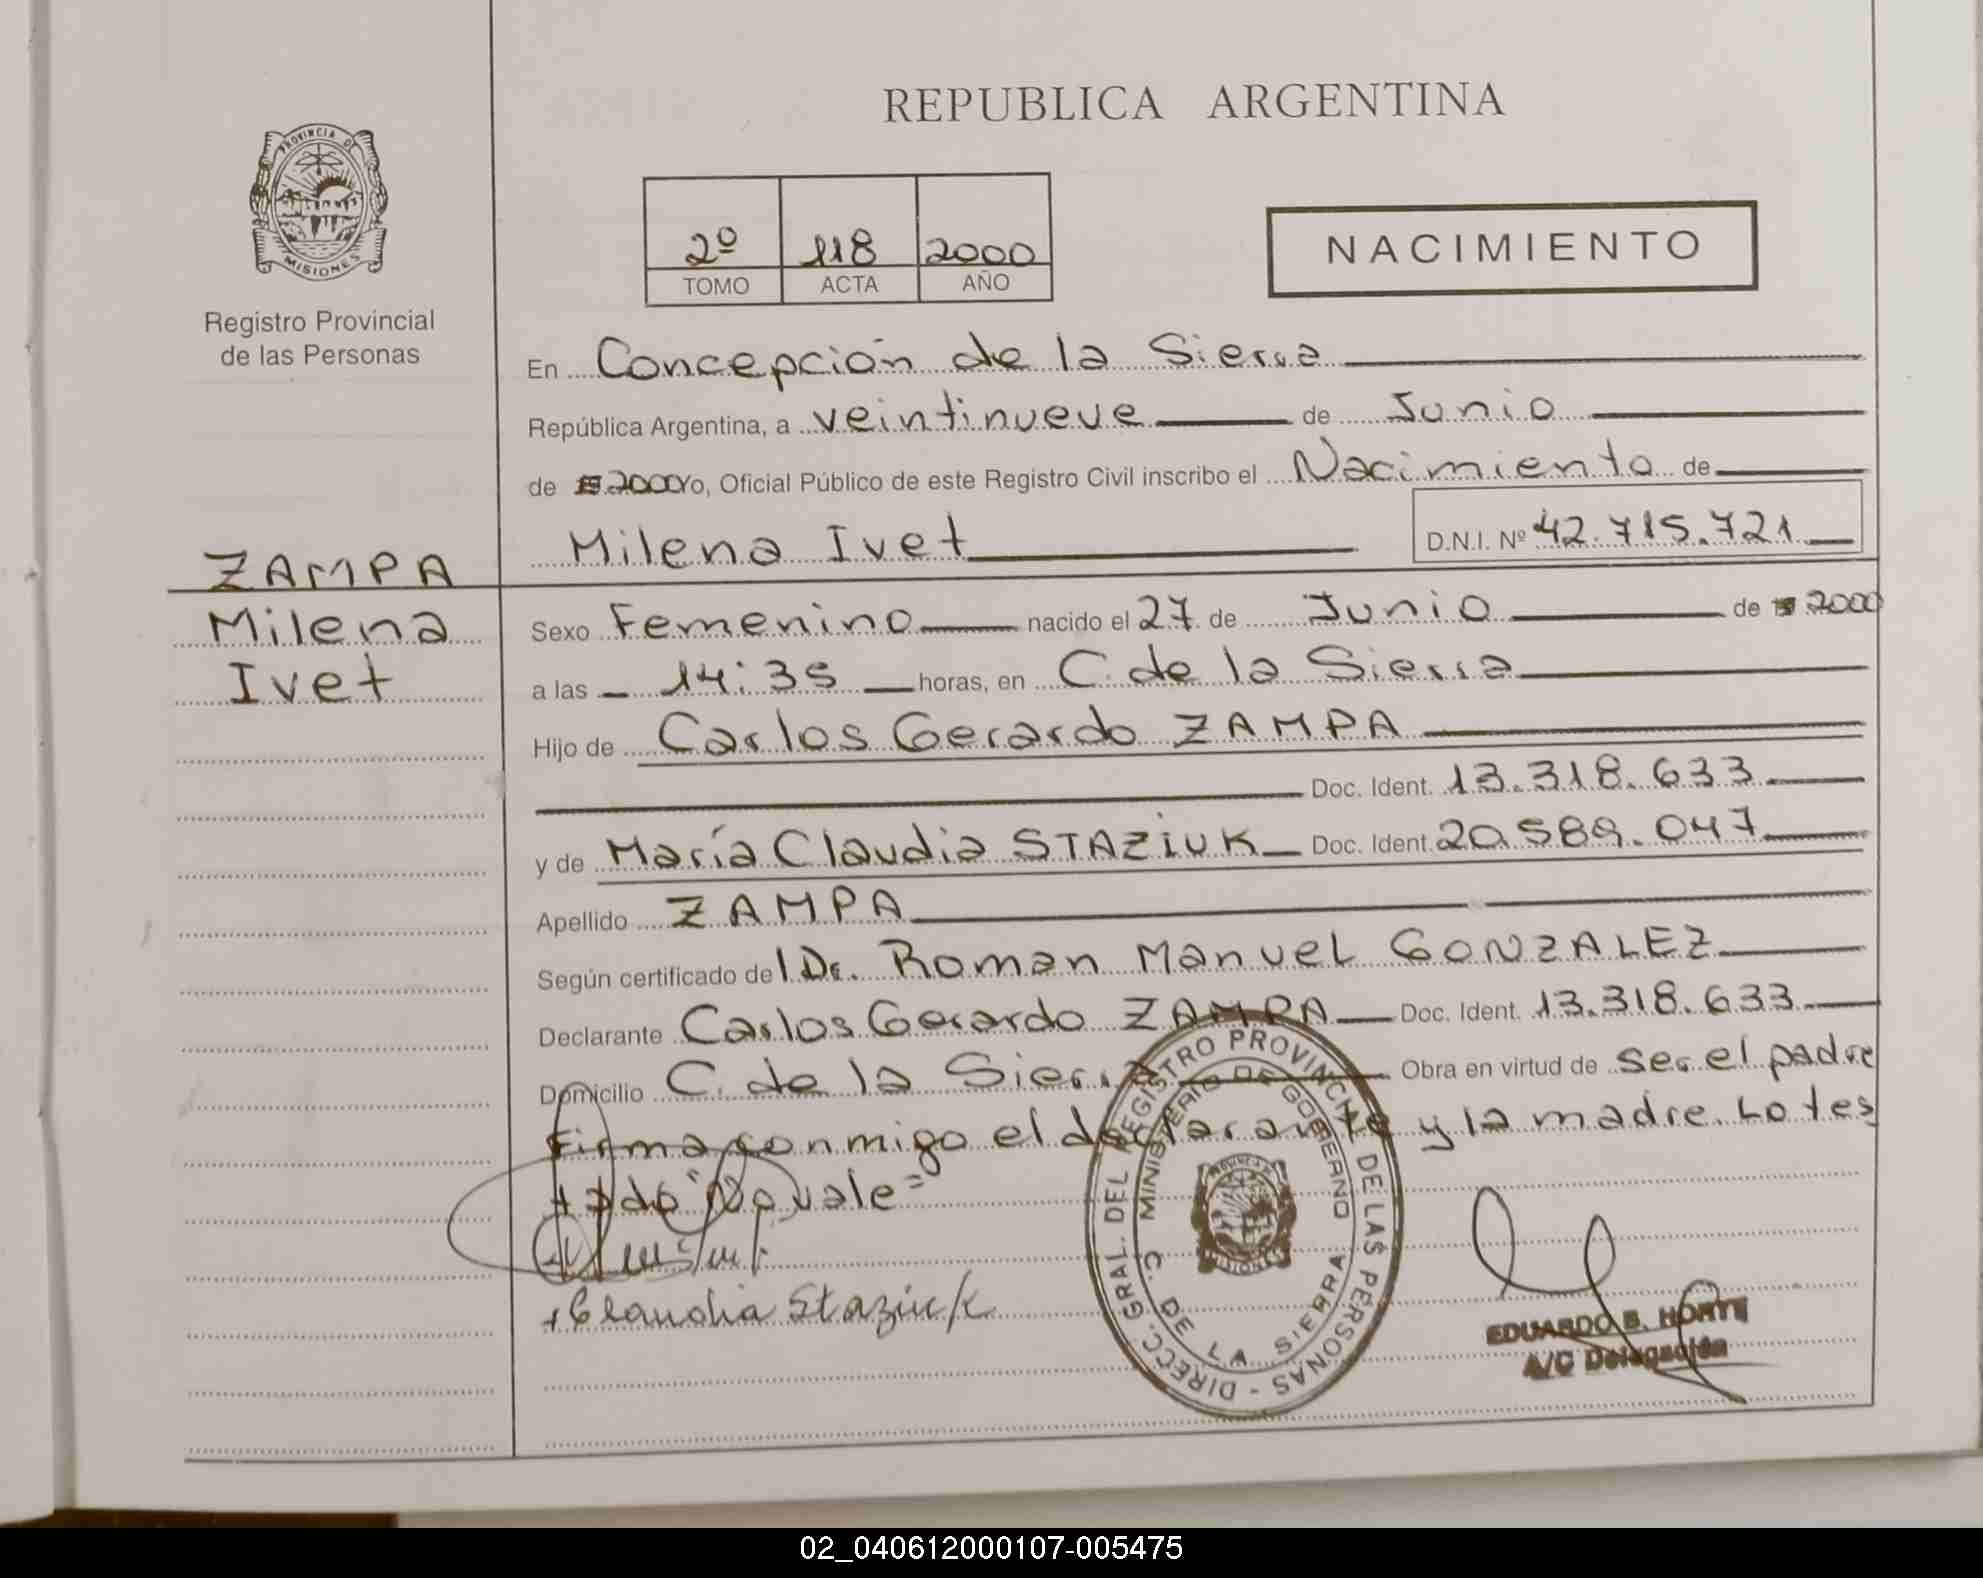 REPUBLICA ARGENTINA
PROVINCIA DE
MISIONES
Registro Provincial
de las Personas
2º 118 2000
TOMO ACTA AÑO
NACIMIENTO
En Concepción de la Sierra
República Argentina, a veintinueve de Junio
de 2000 Yo, Oficial Público de este Registro Civil inscribo el Nacimiento de
Milena Ivet D.N.I. Nº 42.715.721
ZAMPA
Milena
Ivet
Sexo Femenino nacido el 27 de Junio de 2000
a las 14:35 horas, en C. de la Sierra
Hijo de Carlos Gerardo ZAMPA
Doc. Ident. 13.318.633
y de María Claudia STAZIUK Doc. Ident. 20.589.047
Apellido ZAMPA
Según certificado de l Dr. Roman Manuel GONZALEZ
Declarante Carlos Gerardo ZAMPA Doc. Ident. 13.318.633
Domicilio C. de la Sierra Obra en virtud de ser el padre
Firma conmigo el declarante y la madre. Lo tes
tado "No vale"
+Claudia Staziuk
DIRECC. GRAL. DEL REGISTRO PROVINCIAL DE LAS PERSONAS -
MINISTERIO DE GOBIERNO
C. DE LA SIERRA
EDUARDO B. HORTE
A/C Delegación
02_040612000107-005475